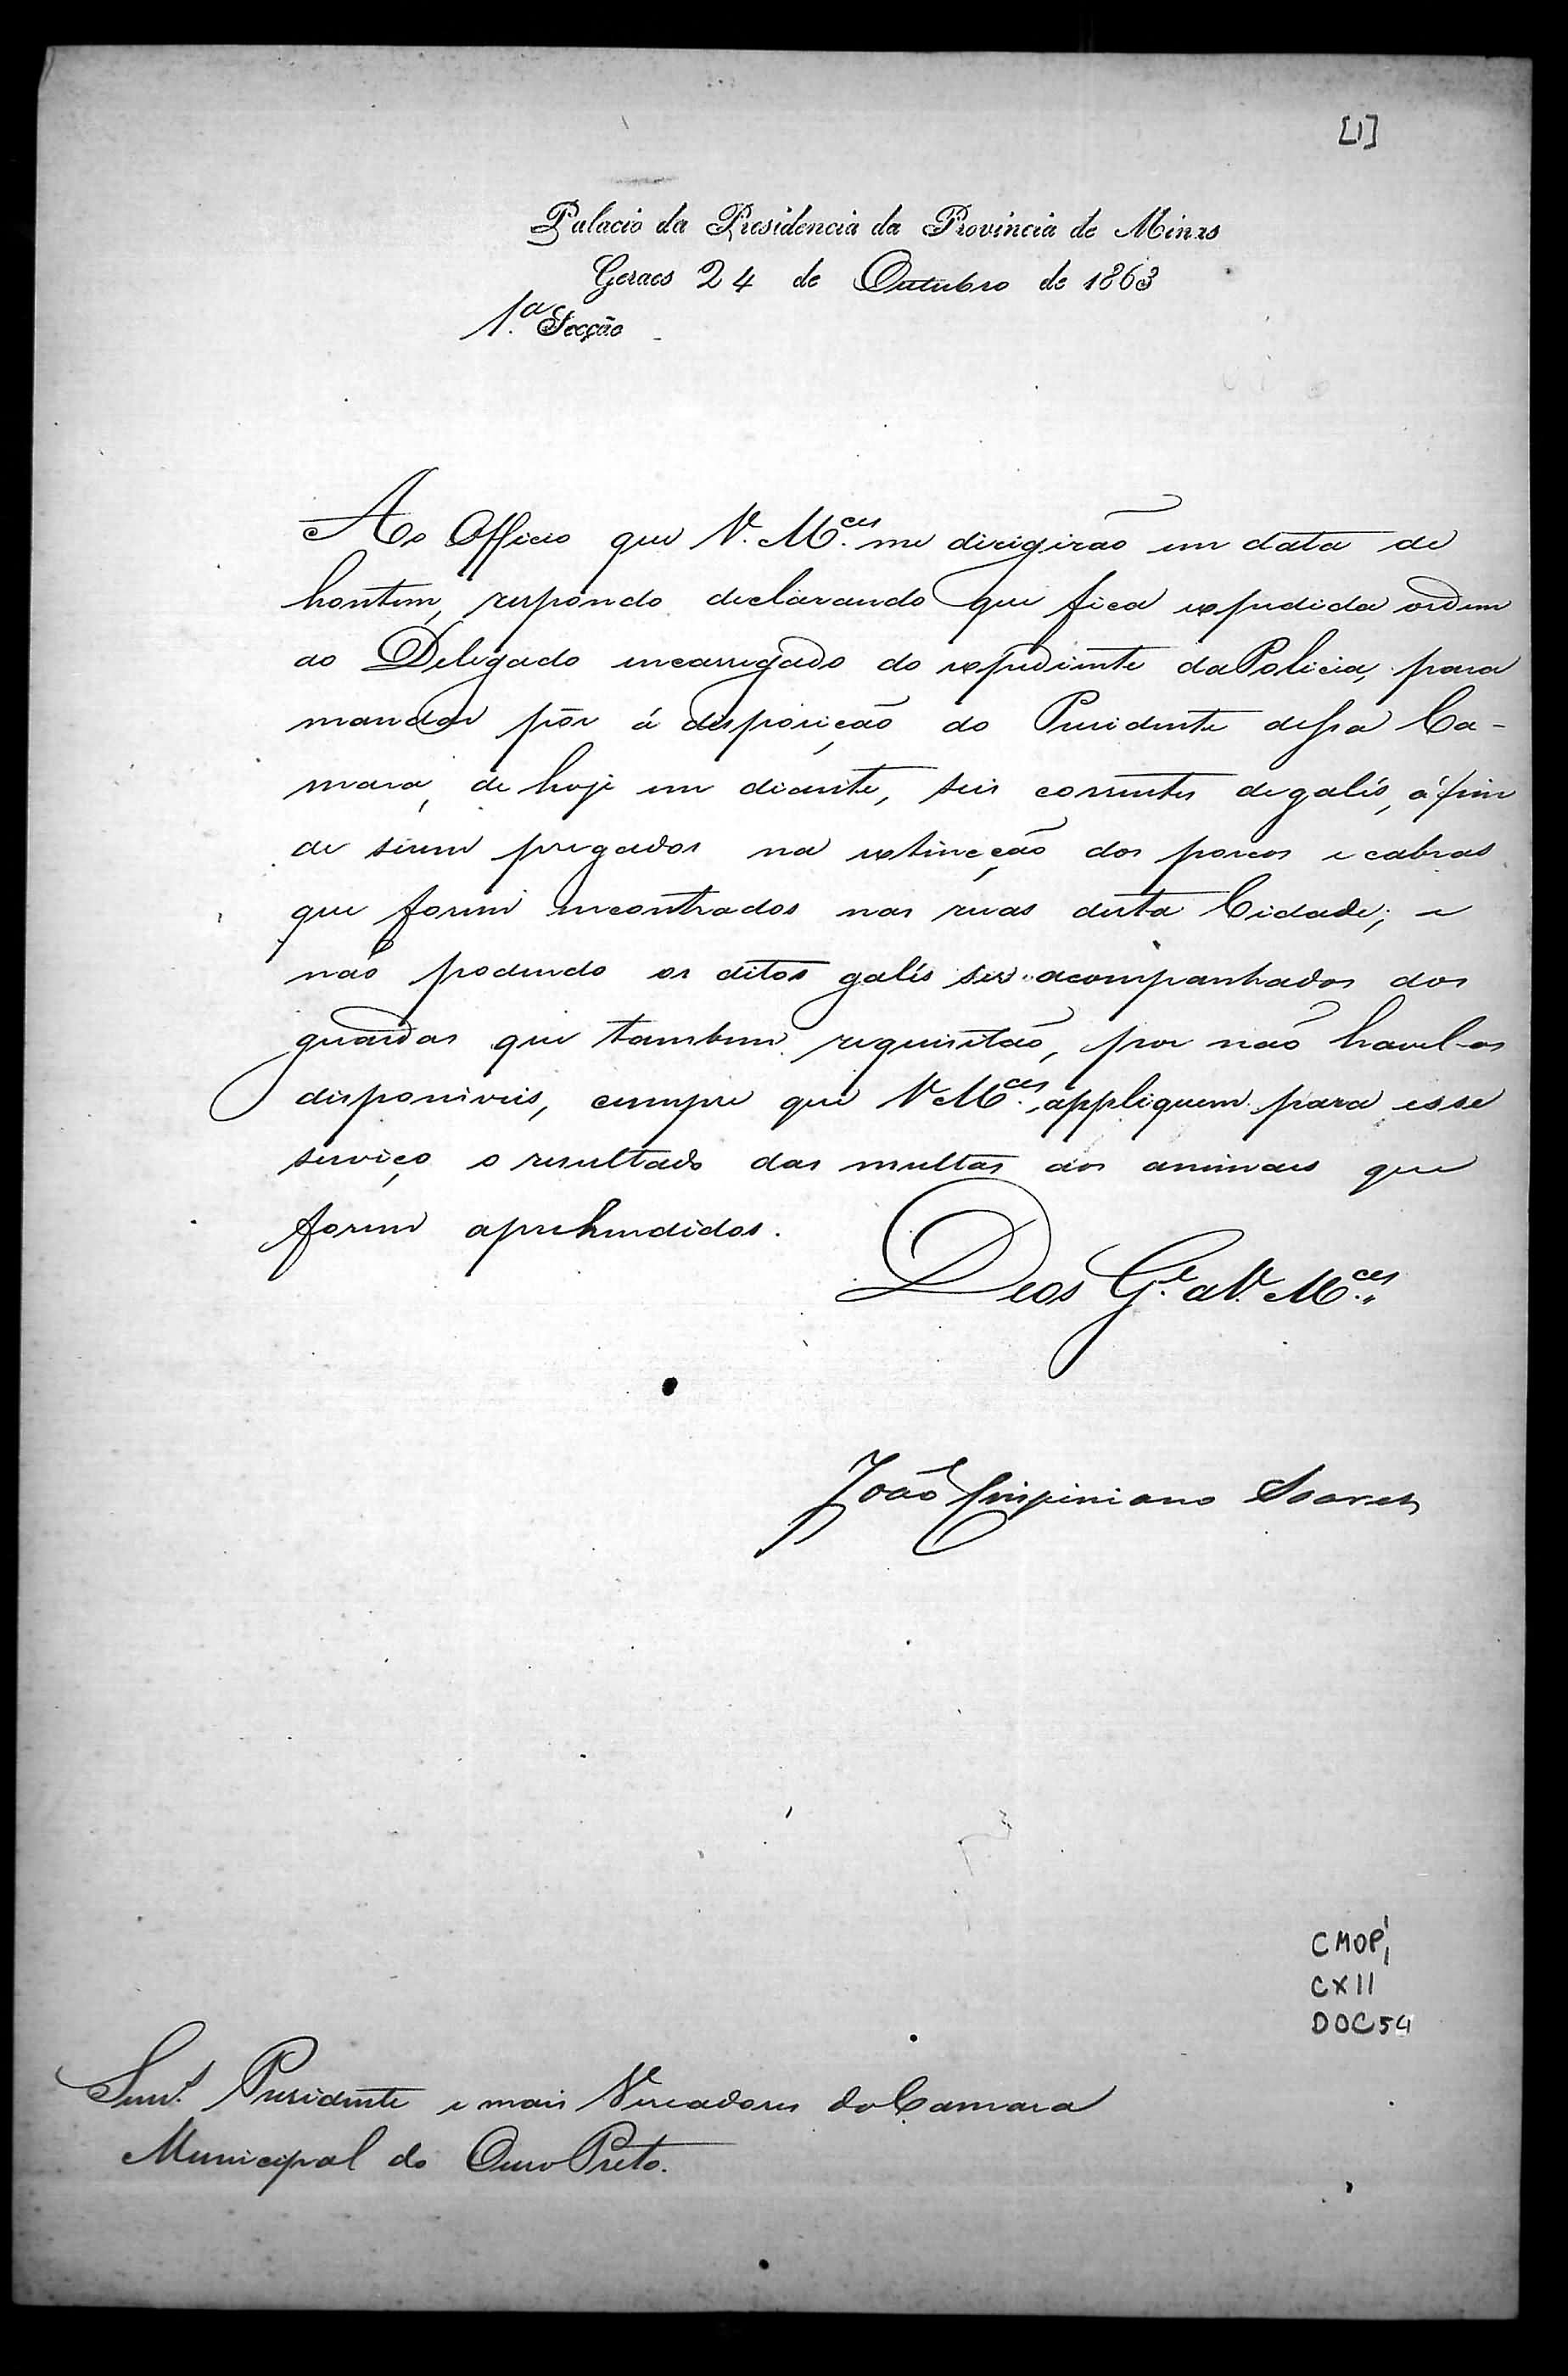 [1]
Palacio da Presidencia da Provincia de Minas
Geraes 24 de Outubro de 1863
1.ª Secção
Ao Officio que V. M.ces me dirigirão em data de
hontem, respondo declarando que fica expedida ordem
ao Delegado encarregado do expediente da Policia, para
mandar pôr á disposição do Presidente dessa Ca-
mara, de hoje em diante, seis correntes de galés, á fim
de serem pregados na extincção dos porcos e cabras
que forem encontrados nas ruas desta Cidade; e
não podendo os ditos galés ser acompanhados dos
guardas que tambem requisitão, por não havel-os
disponiveis, cumpre que V M.ces appliquem para esse
serviço o resultado das multas dos animaes que
forem aprehendidos.
Deos G.e a V. M.ces
João Crispiniano Soares
CMOP
CX 11
DOC 54
Senr.s Presidente e mais Vereadores da Camara
Municipal do Ouro Preto.